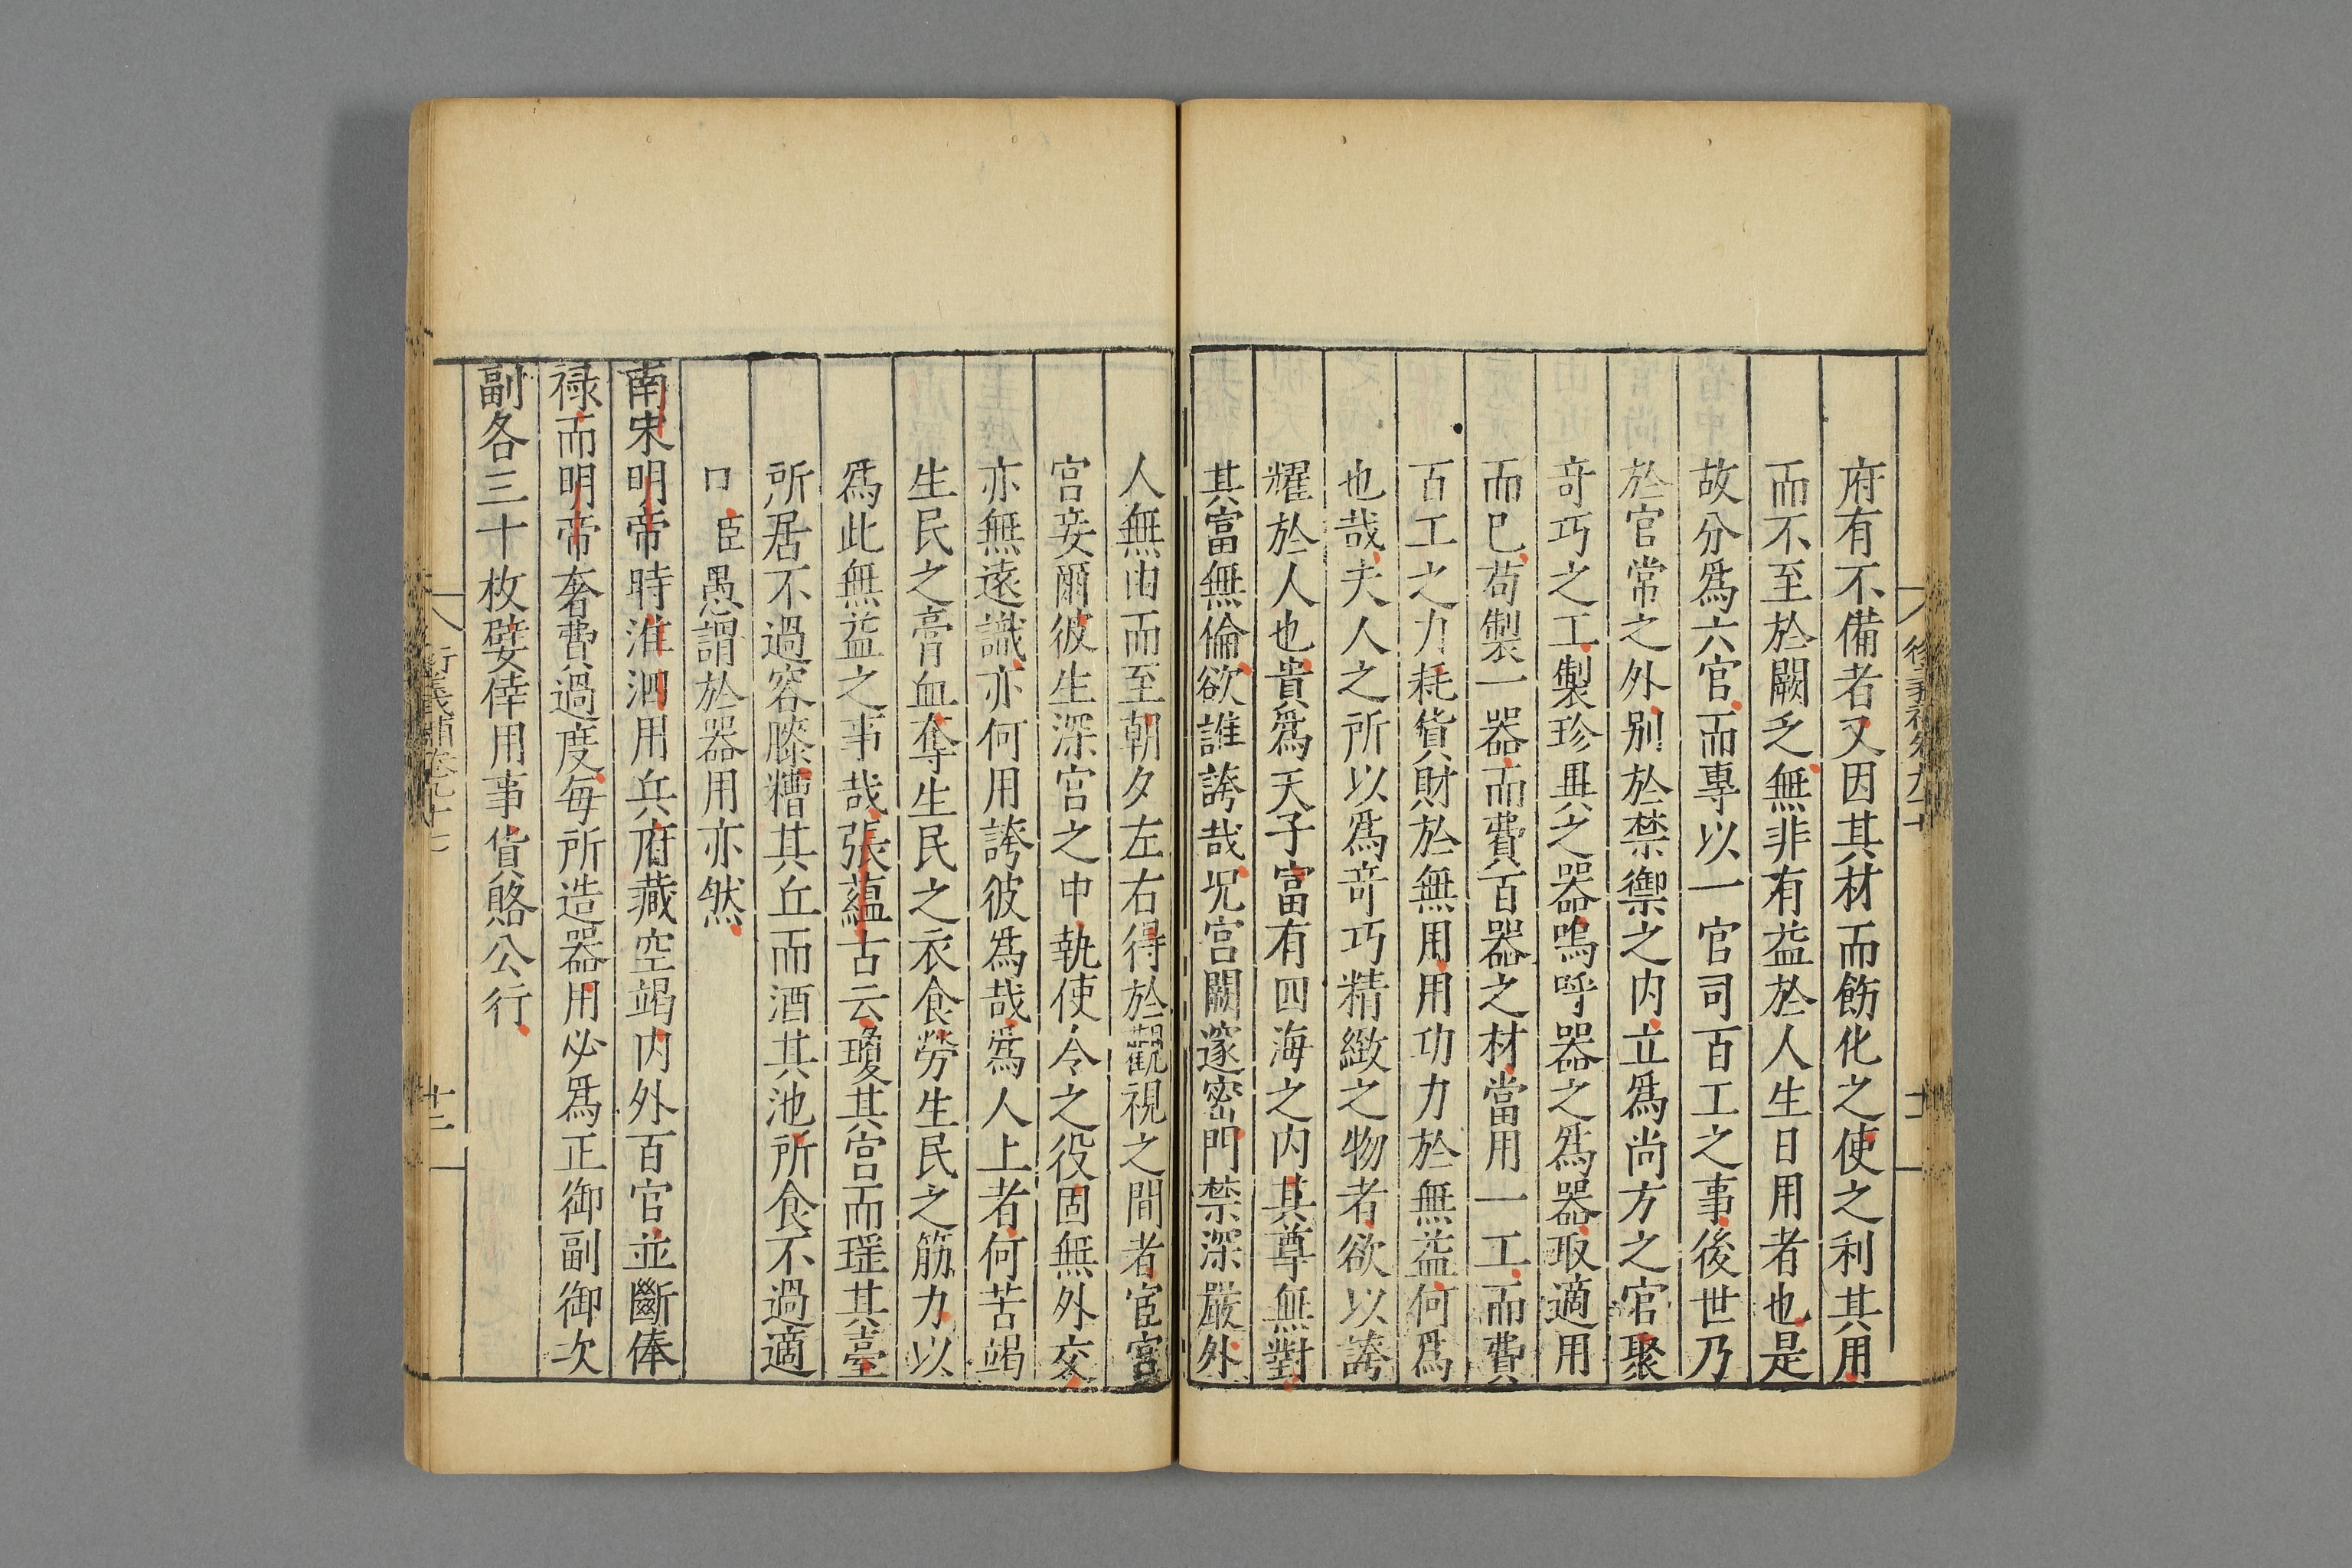 府有不備者又因其材而飭化之使之利其用
而不至於闕乏無非有益於人生日用者也是
故分爲六官而專以一官司百工之事後世乃
於官常之外別於禁禦之内立爲尚方之官聚
竒巧之工製珍異之器嗚呼器之爲器取適用
而已苟製一器而費百器之材當用一工而費
百工之力耗貨財於無用用功力於無益何爲
也哉夫人之所以爲竒巧精緻之物者欲以誇
耀於人也貴爲天子富有四海之内其尊無對
其富無倫欲誰誇哉况宫闕邃密門禁深嚴外
人無由而至朝夕左右得於觀視之間者宦官
宫妾爾彼生深宫之中執使令之役固無外交
亦無遠識亦何用誇彼爲哉爲人上者何苦竭
生民之膏血奪生民之衣食勞生民之筋力以
爲此無益之事哉張藴古云瓊其宫而瑶其臺
所居不過容膝糟其丘而酒其池所食不過適
口臣愚謂於器用亦然
南宋明帝時淮泗用兵府藏空竭内外百官並斷俸
禄而明帝奢費過度每所造器用必爲正御副御次
副各三十枚嬖倖用事貨賂公行
衍義補卷九十七
十二